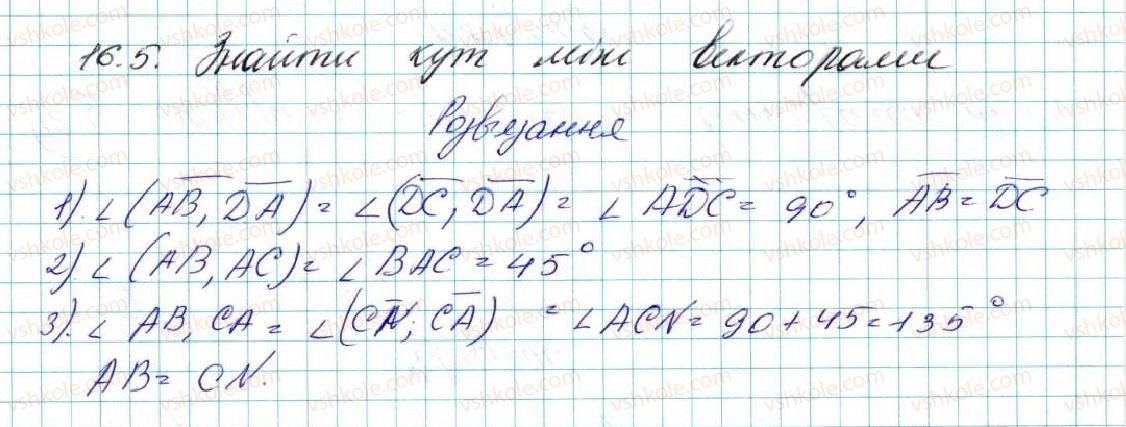 16.5. Знайти кут між векторами
Розв'язання
1). ∠(AB, DA) = ∠(DC, DA) = ∠ ADC = 90°, AB = DC
2). ∠ (AB, AC) = ∠ BAC = 45°
3). ∠ AB, CA = ∠(CN; CA) = ∠ ACN = 90 + 45 = 135°
AB = CN.
vshkole.com